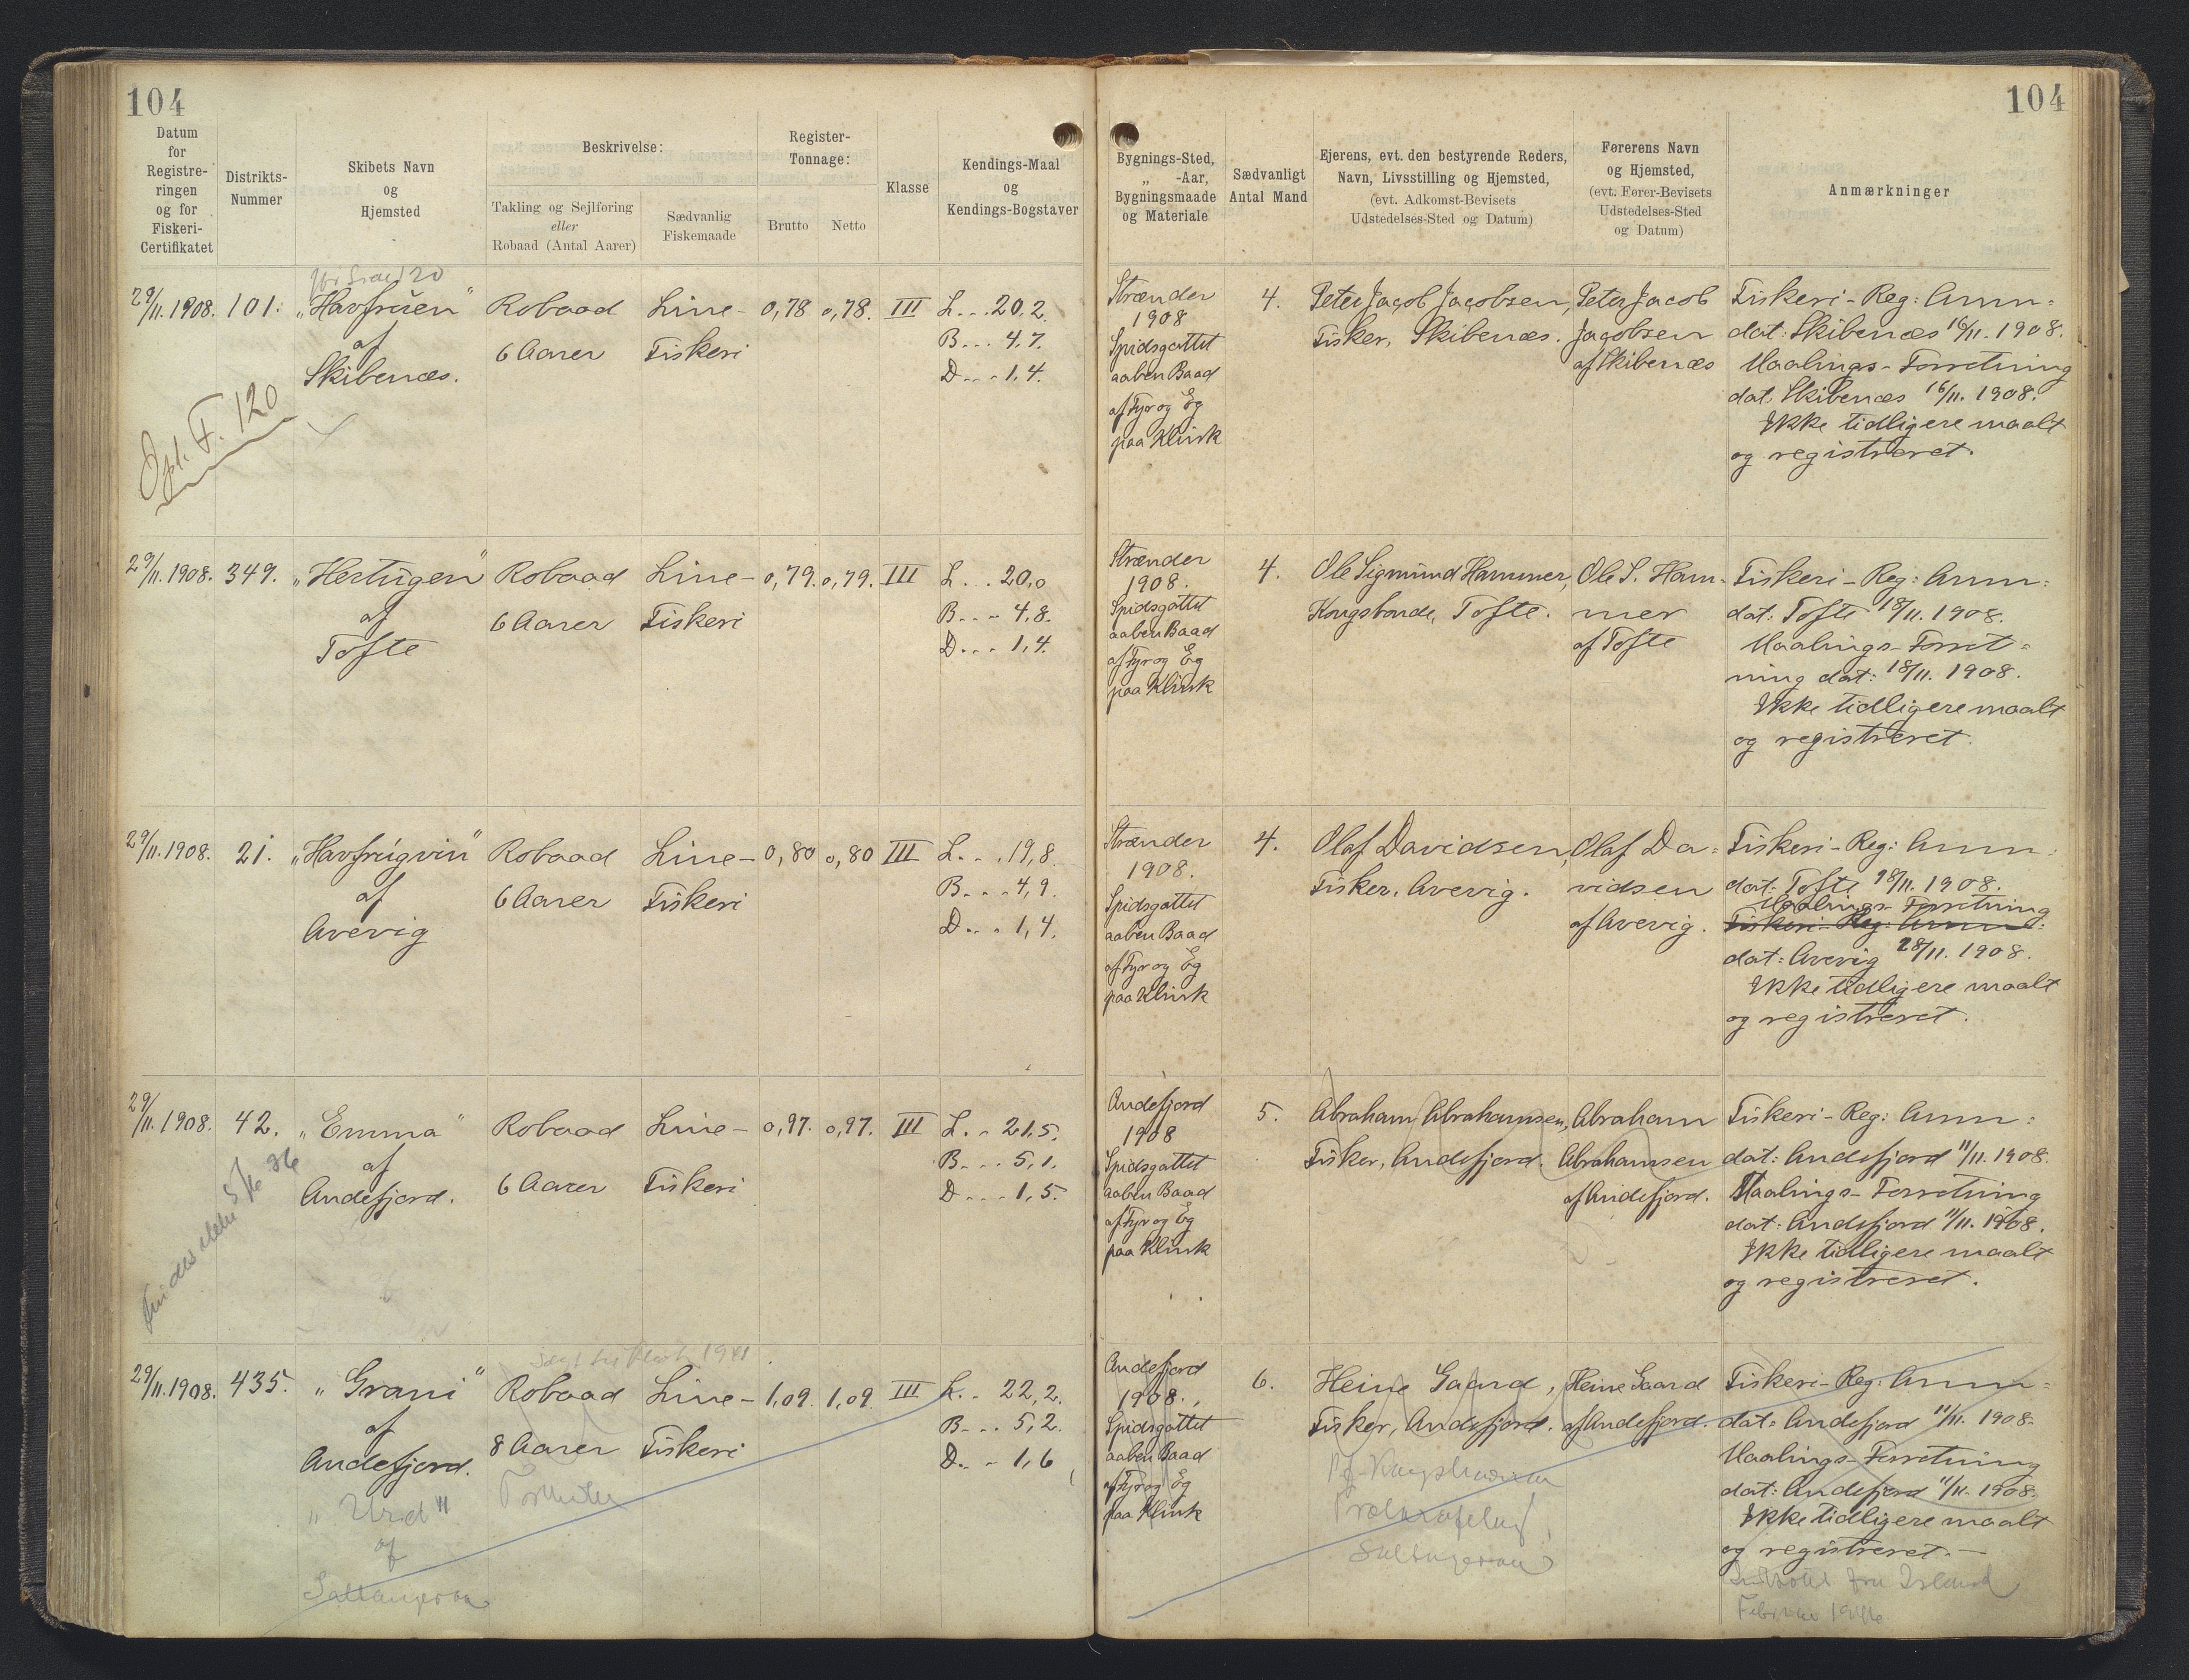 104
104
Datum
for
Registre-
ringen
og for
Fiskeri-
Certifikatet
Distrikts-
Nummer
Skibets Navn
og
Hjemsted
Beskrivelse:
Takling og Sejlføring
eller
Robaad (Antal Aarer)
Sædvanlig
Fiskemaade
Register-
Tonnage:
Brutto
Netto
Klasse
Kendings-Maal
og
Kendings-Bogstaver
Bygnings-Sted,
„ -Aar,
Bygningsmaade
og Materiale
Sædvanligt
Antal Mand
Ejerens, evt. den bestyrende Reders,
Navn, Livsstilling og Hjemsted,
(evt. Adkomst-Bevisets
Udstedelses-Sted og Datum)
Førerens Navn
og Hjemsted,
(evt. Fører-Bevisets
Udstedelses-Sted
og Datum)
Anmærkninger
29/11. 1908.
101.
20
„Havfruen"
af
Skibenæs.
F. 120
Robaad
6 Aarer
Line-
Fiskeri
0,78
0,78.
III
L. . . 20,2.
B. . . 4,7.
D. . . 1,4.
Strænder
1908
Spidsgattet
aaben Baad
af Fyr og Eg
paa Klink
4.
Peter Jacob Jacobsen,
Fisker, Skibenæs.
Peter Jacob
Jacobsen
af Skibenæs
Fiskeri-Reg: Anm=
dat: Skibenæs 16/11. 1908.
Maalings-Forretning
dat. Skibenæs 16/11. 1908.
Ikke tidligere maalt
og registreret.
29/11. 1908.
349.
„Hertugen"
af
Tofte
Robaad
6 Aarer
Line-
Fiskeri
0,79.
0,79.
III
L. . . 20,0
B. . . 4,8.
D. . . 1,4.
Strænder
1908.
Spidsgattet
aaben Baad
af Fyr og Eg
paa Klink
4.
Ole Sigmund Hammer,
Kongsbonde, Tofte.
Ole S. Ham-
mer
af Tofte
Fiskeri-Reg: Anm:
dat: Tofte 18/11. 1908.
Maalings-Forret=
ning dat: 18/11. 1908.
Ikke tidligere maalt
og registreret.
29/11. 1908.
21.
„Havfrugvin"
af
Avevig
Robaad
6 Aarer
Line-
Fiskeri
0,80
0,80
III
L. . . 19,8.
B. . . 4,9.
D. . . 1,4.
Strænder
1908.
Spidsgattet
aaben Baad
af Fyr og Eg
paa Klink
4.
Olaf Davidsen,
Fisker, Avevig.
Olaf Da=
vidsen
af Avevig.
Fiskeri-Reg: Anm:
dat: Tofte 18/11. 1908.
Maalings-Forretning
Fiskeri-Reg: Anm:
dat: Avevig 28/11. 1908.
Ikke tidligere maalt
og registreret.
29/11. 1908.
42.
„Emma"
af
Andefjord.
36
Robaad
6 Aarer
Line-
Fiskeri
0,97.
0,97.
III
L. . 21,5.
B. . . 5,1.
D. . . 1,5.
Andefjord
1908
Spidsgattet
aaben Baad
af Fyr og Eg
paa Klink
5.
Abraham Abrahamsen,
Fisker, Andefjord.
Abraham
Abrahamsen
af Andefjord.
Fiskeri-Reg: Anm:
dat: Andefjord 11/11. 1908.
Maalings-Forretning
dat: Andefjord 11/11. 1908.
Ikke tidligere maalt
og registreret.
29/11. 1908.
435.
„Grani"
af
Andefjord.
„Urd"
af
1941
Robaad
8 Aarer
Line-
Fiskeri
1,09.
1,09.
III
L. . 22,2.
B. . . 5,2.
D. . . 1,6
Andefjord
1908.
Spidsgattet
aaben Baad
af Fyr og Eg
paa Klink
6.
Heine Gaard,
Fisker, Andefjord.
Heine Gaard
af Andefjord.
Fiskeri-Reg: Anm=
dat: Andefjord 11/11. 1908.
Maalings-Forretning
dat: Andefjord 11/11. 1908.
Ikke tidligere maalt
og registreret.-
fra Island